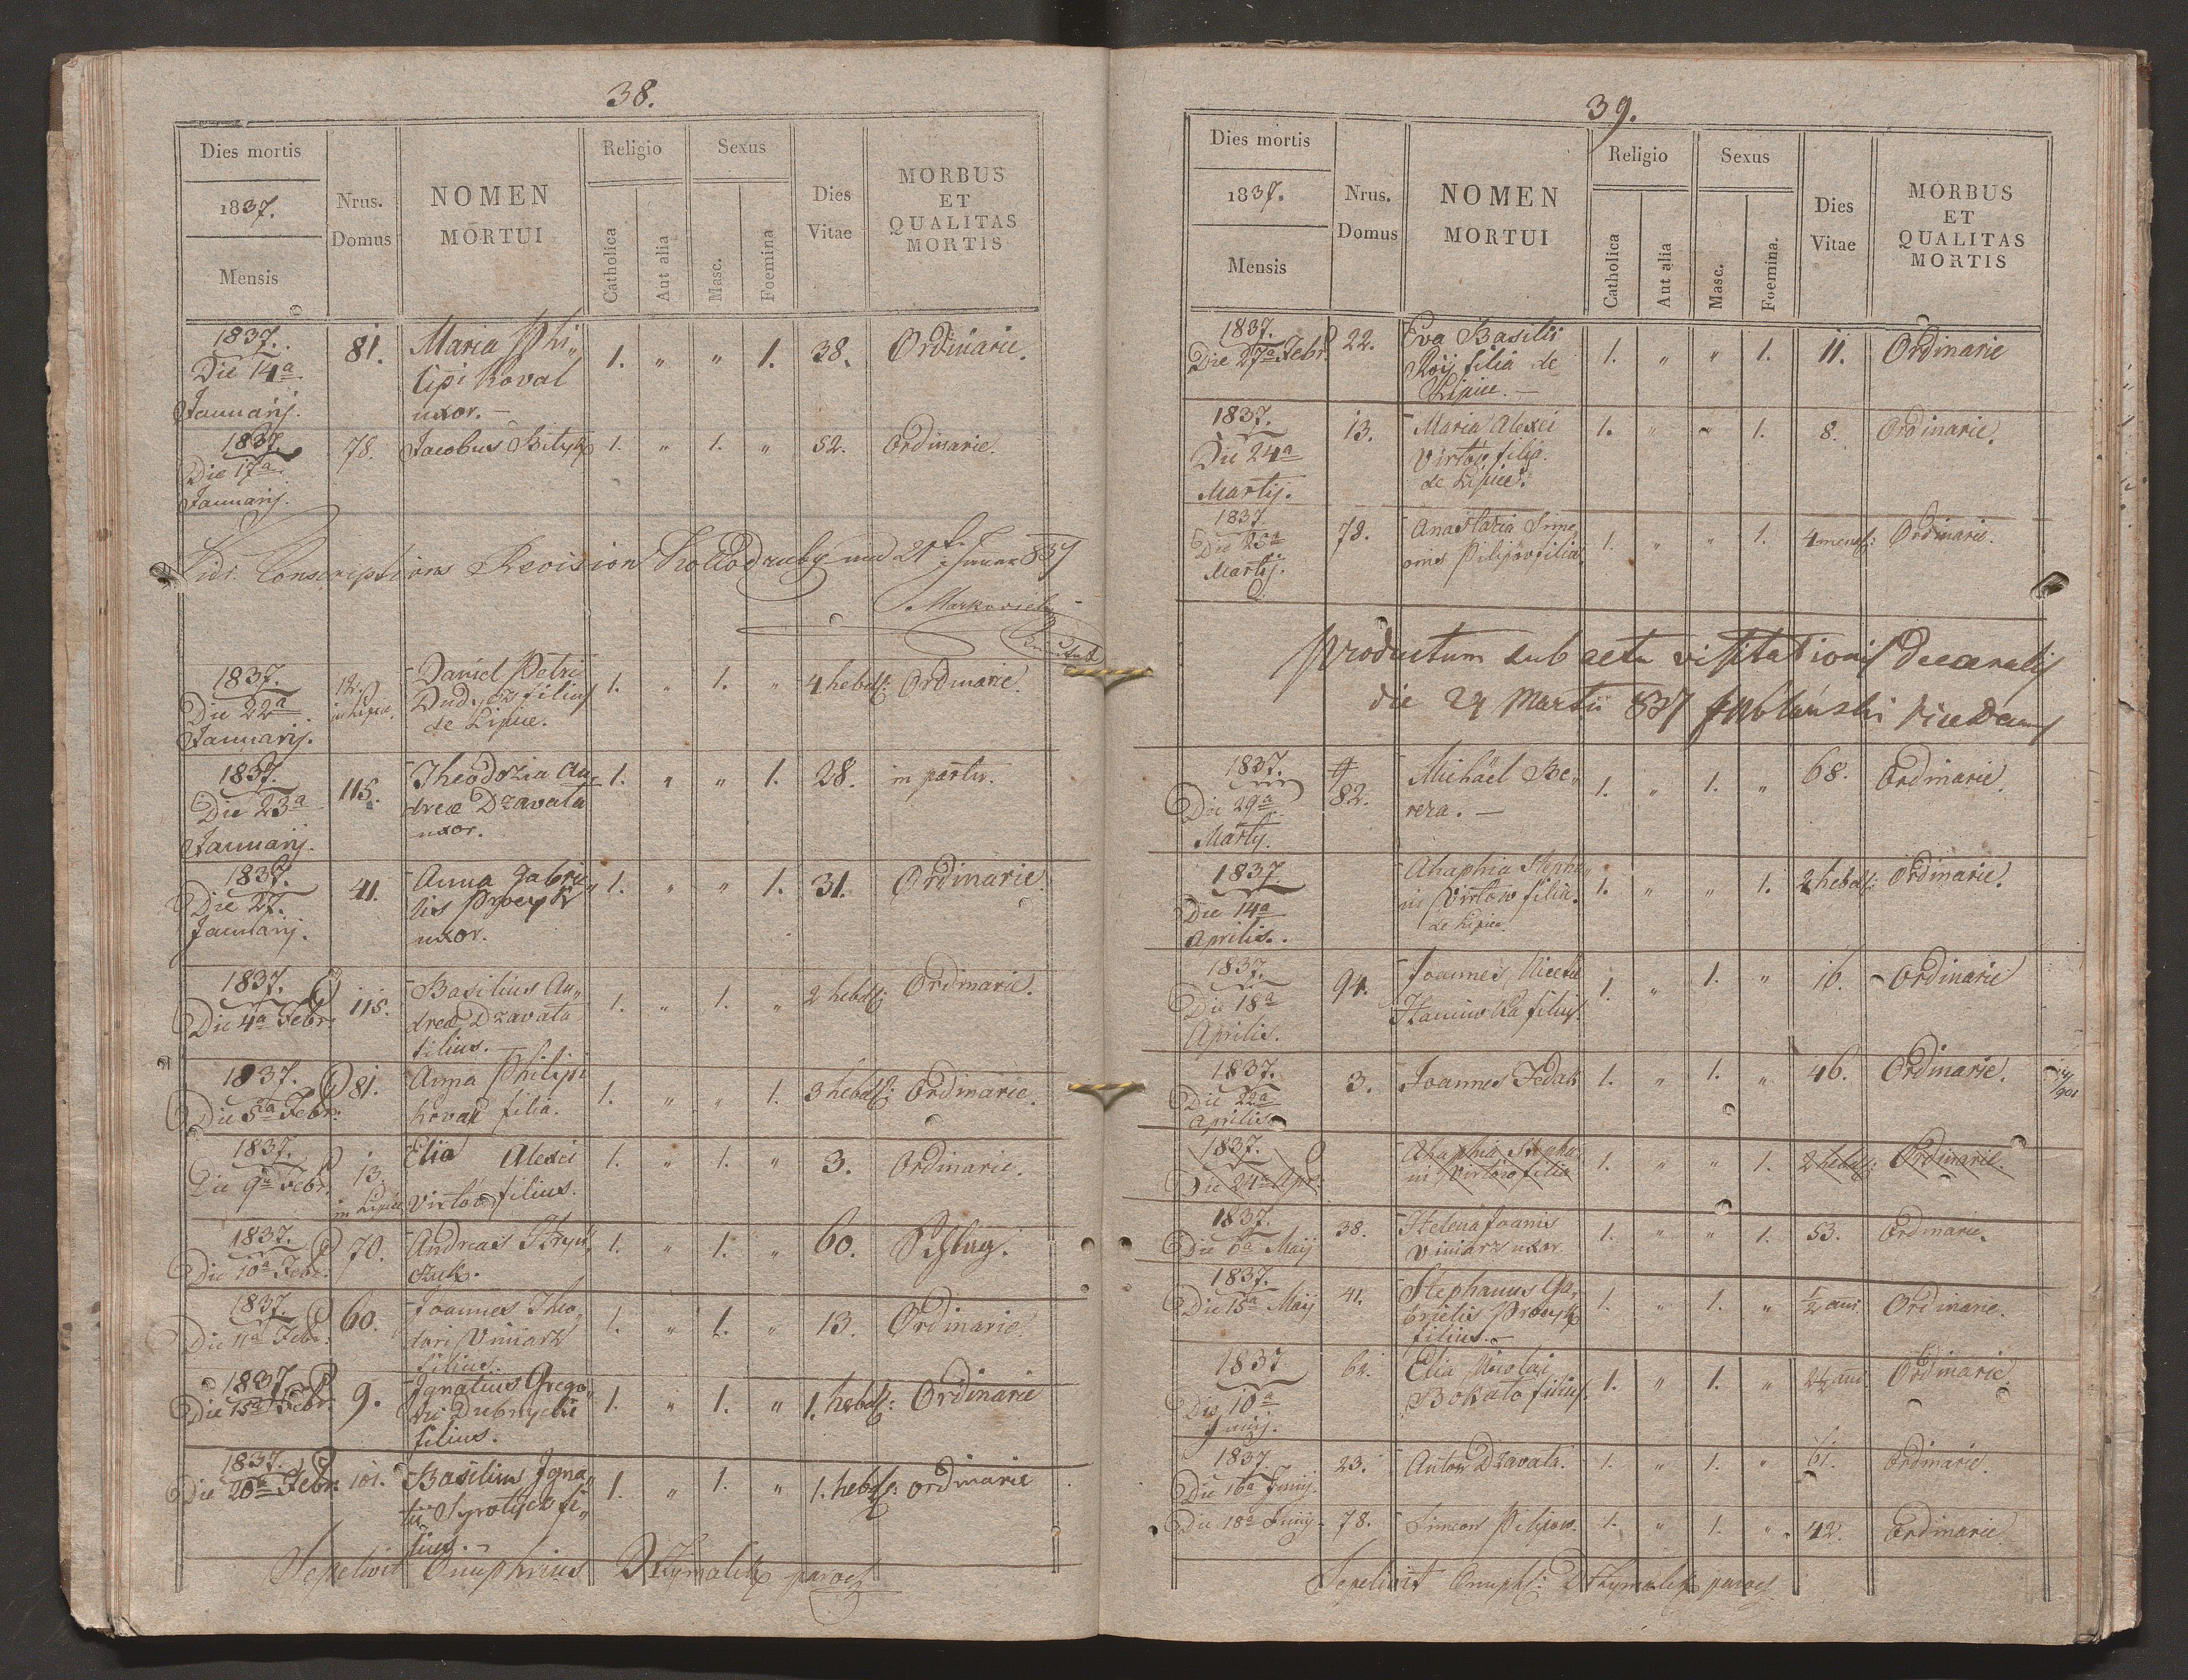 38.
Dies mortis
1837.
Mensis
Nrus. Domus
NOMEN
MORTUI
Religio
Catholica
Aut alia
Sexus
Masc.
Foemina
Dies
Vitae
MORBUS
ET
QUALITAS
MORTIS
1837.
Die 14a
Januarij.
81.
Maria Phi„
lipi Koval
uxor.—
1. „ „ 1. 38. Ordinarie.
1837.
Die 17a
Januarij.
78. Jacobus 1. „ 1. „ 52. Ordinarie.
Vidi Conscriptions Revision Hollodruby
1837.
Die 22a
Januarij.
12.
in Lipice.
Daniel Petri
filius
de Lipice.
1. „ 1. „ 4 hebd: Ordinarie.
1837.
Die 23a
Januarij.
115.
Theodozia An„
dreæ Dzavala
uxor.
1. „ „ 1. 28. in partu.
1837.
Die 27.
Januarij.
41.
Anna Gabrie„
lis
uxor.
1. „ „ 1. 31. Ordinarie.
1837.
Die 4a Febr.
115.
Basilius An„
dreæ Dzavala
filius.—
1. „ 1. „ 2 hebd: Ordinarie.
1837.
Die 5ta Febr.
81.
Anna Philipi
Koval filia.
1. „ „ 1. 3 hebd: Ordinarie.
1837.
Die 9a Febr.
13.
in Lipice
Elia Alexei
Virtow filius.
1. „ 1. „ 3. Ordinarie.
1837.
Die 10a Febr.
70.
Andreas
1. „ 1. „ 60.
1837.
Die 11a Febr.
60.
Joannes Theo„
dori Viniarz
filius.
1. „ 1. „ 13. Ordinarie.
1837.
Die 15a Febr.
9.
Ignatius Grego„
rii
filius.
1. „ 1. „ 1. hebd: Ordinarie
1837.
Die 20a Febr.
101.
Basilius Igna„
tii fi„
lius.—
1. „ 1. „ 1. hebd: Ordinarie
Sepelivit Onuphrius paroch
39.
Dies mortis
1837.
Mensis
Nrus.
Domus
NOMEN
MORTUI
Religio
Catholica
Aut alia
Sexus
Masc.
Foemina.
Dies
Vitae
MORBUS
ET
QUALITAS
MORTIS
1837.
Die 27a Febr.
22.
Eva Basilii
filia de
Lipice.—
1. „ „ 1. 11. Ordinarie
1837.
Die 24a
Martij.
13.
Maria Alexei
Virtow filia.
de Lipice.
1. „ „ 1. 8. Ordinarie.
1837.
Die 25a
Martij.
78.
Anastazia Sime„
onis Pilipow filia.
1. „ „ 1. 4 mens: Ordinarie.
Productum sub actu visitationis Decanalis
die 27 Martii 837
1837.
Die 29a
Martij.
82.
Michäel Be„
reza.—
1. „ 1. „ 68. Ordinarie.
1837.
Die 14a
Aprilis.
Ahaphia Stepha„
ni Virtow filia.
de Lipice
1. „ „ 1. 2 hebd: Ordinarie.
1837.
Die 18a
Aprilis.
94.
Joannes Nicetæ
filius.
1. „ 1. „ 16. Ordinarie
1837.
Die 22a
Aprilis
3. Joannes Fedak 1. „ 1. „ 46. Ordinarie.
1837.
Die 24a Apr.
Ahaphia Stepha„
ni Virtow filia
1. „ „ 1. 2 hebd: Ordinarie.
1837.
Die 6a Maij
38.
Helena Joanis
Viniarz uxor
1. „ „ 1. 53. Ordinarie.
1837.
Die 15a Maij
41.
Stephanus Ga„
brielis
filius.—
1. „ 1. „ 1/2 ani. Ordinarie.
1837.
Die 10a
Junij.
62.
Elia Nicolai
Bokalo filius.
1. „ 1. „ 2 1/2 ani. Ordinarie.
1837.
Die 16a Junij.
23. Anton Dzavala. 1. „ 1. „ 61. Ordinarie.
Die 18a Junij. 78. Simeon Pilipow. 1. „ 1. „ 42. Ordinarie.
Sepelivit Onuph: paroch